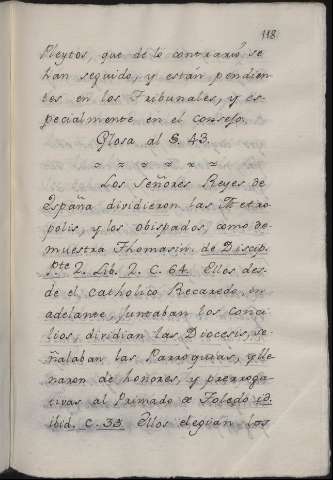 118
Pleytos, que de lo contrario se
han seguido, y están pendien
tes en los Tribunales, y es-
pecialmente en el consejo.
Glosa al §. 43.
Los Señores Reyes de
España dividieron las Metro
polis, y los obispados, como de
muestra Thomasin. de Discip.
pte 2. Lib. 2. C. 64. Ellos des-
de el catholico Recaredo en
adelante, juntaban los conci
lios, dividian las Diocesis, se-
ñalaban las Parroquias, y lle
naron de honores, y prerroga-
tivas al Primado de Toledo id.
ibid. C. 33. Ellos elegian los